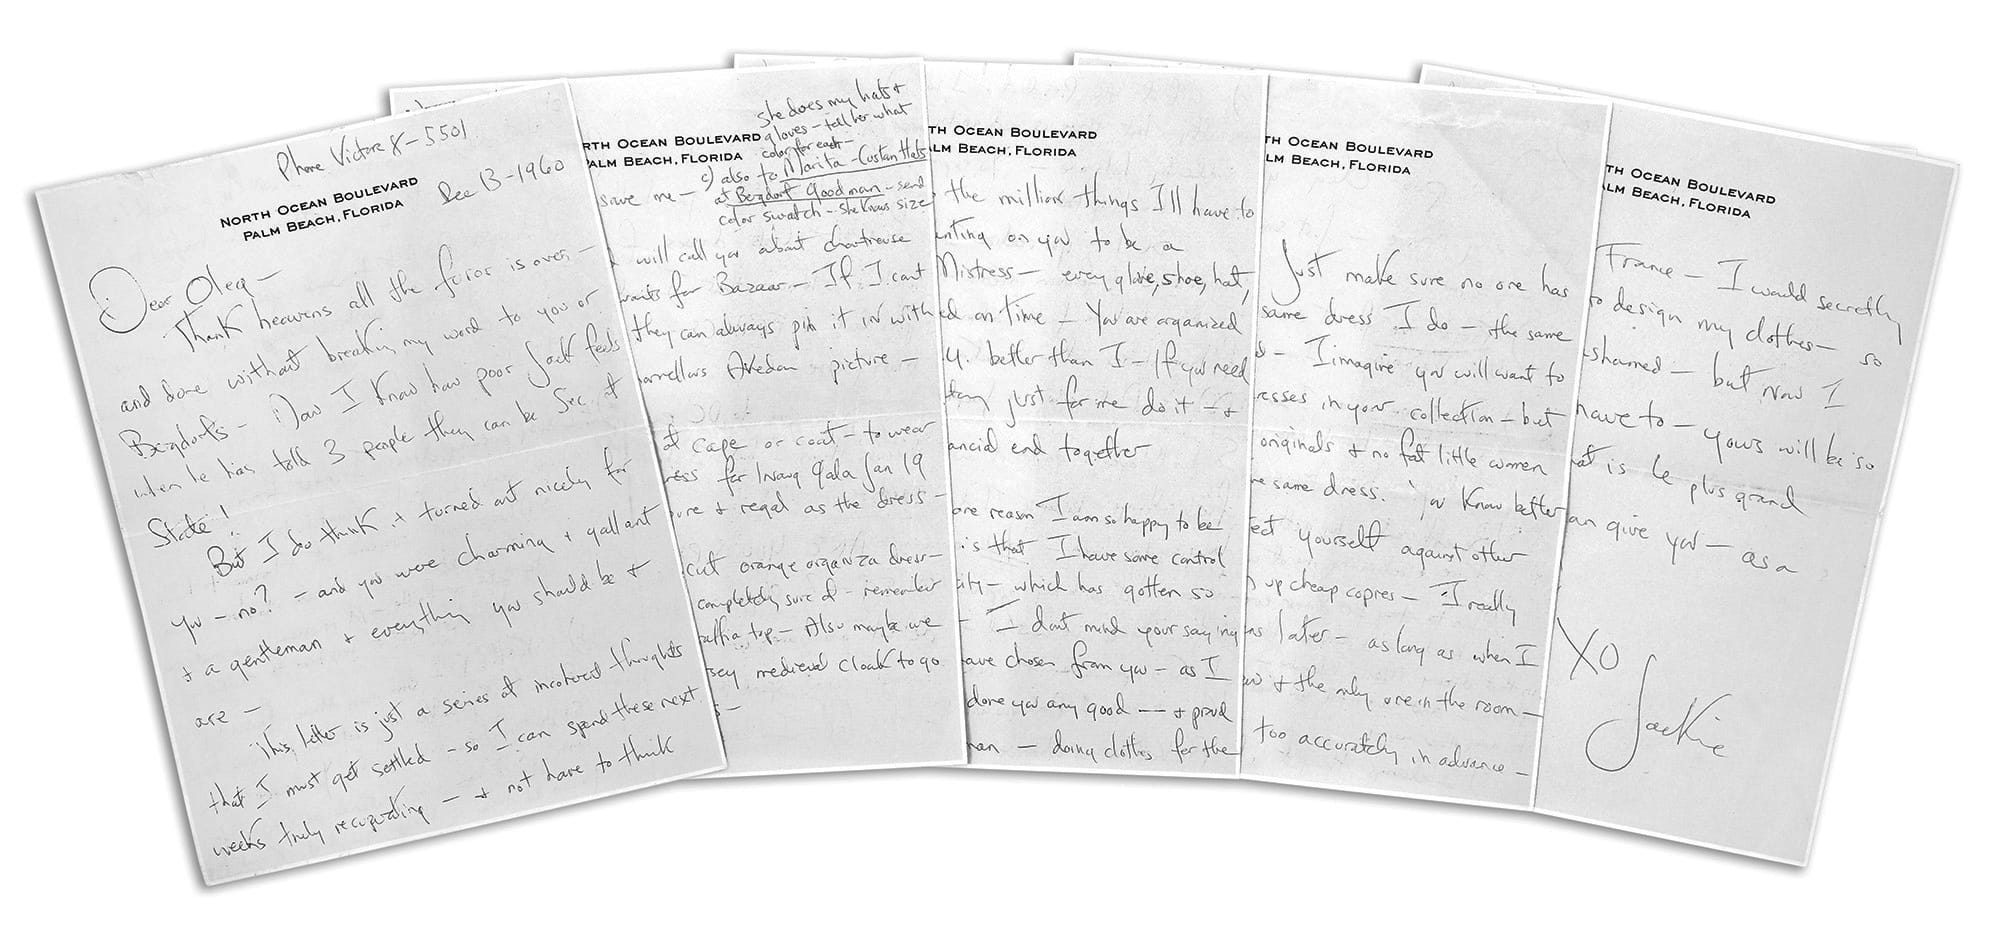 Phone Victor 8-5501
NORTH OCEAN BOULEVARD
PALM BEACH, FLORIDA
Dec 13-1960
Dear Oleg —
Thank heavens all the furor is over —
and done without breaking my word to you or
Bergdorfs — Now I know how poor Jack feels
when he has told 3 people they can be Sec. of
State!
But I do think it turned out nicely for
you — no? — and you were charming + gallant
+ a gentleman + everything you should be +
are —
This letter is just a series of incoherent thoughts
that I must get settled — so I can spend these next
weeks truly recuperating — + not have to think
she does my hats +
gloves — tell her what
color for each —
RTH OCEAN BOULEVARD
PALM BEACH, FLORIDA
c) also to Marita — Custom Hats
at Bergdorf Goodman — send
color swatch — she knows size
save me —
will call you about chartreuse
wants for Bazaar — If I can't
they can always pin it in with
Avedon picture —
at cape or coat — to wear
ress for Inaug Gala Jan 19
pure + regal as the dress —
cut orange organza dress —
completely sure of — remember
raffia top — Also maybe we
sey medieval cloak to go
TH OCEAN BOULEVARD
PALM BEACH, FLORIDA
the million things I'll have to
unting on you to be a
Mistress — every glove, shoe, hat,
ed on time — You are organized
better than I — If you need
just for me do it — +
ancial end together
one reason I am so happy to be
is that I have some control
city — which has gotten so
— I don't mind your saying
have chosen from you — as I
done you any good — + proud
man — doing clothes for the
TH OCEAN BOULEVARD
LM BEACH, FLORIDA
Just make sure no one has
same dress I do — the same
— I imagine you will want to
resses in your collection — but
originals + no fat little women
same dress. You know better
ect yourself against other
up cheap copies — I really
ns later — as long as when I
+ the only one in the room —
too accurately in advance —
TH OCEAN BOULEVARD
ALM BEACH, FLORIDA
France — I would secretly
to design my clothes — so
shamed — but now I
have to — yours will be so
at is le plus grand
an give you — as a
XO
Jackie